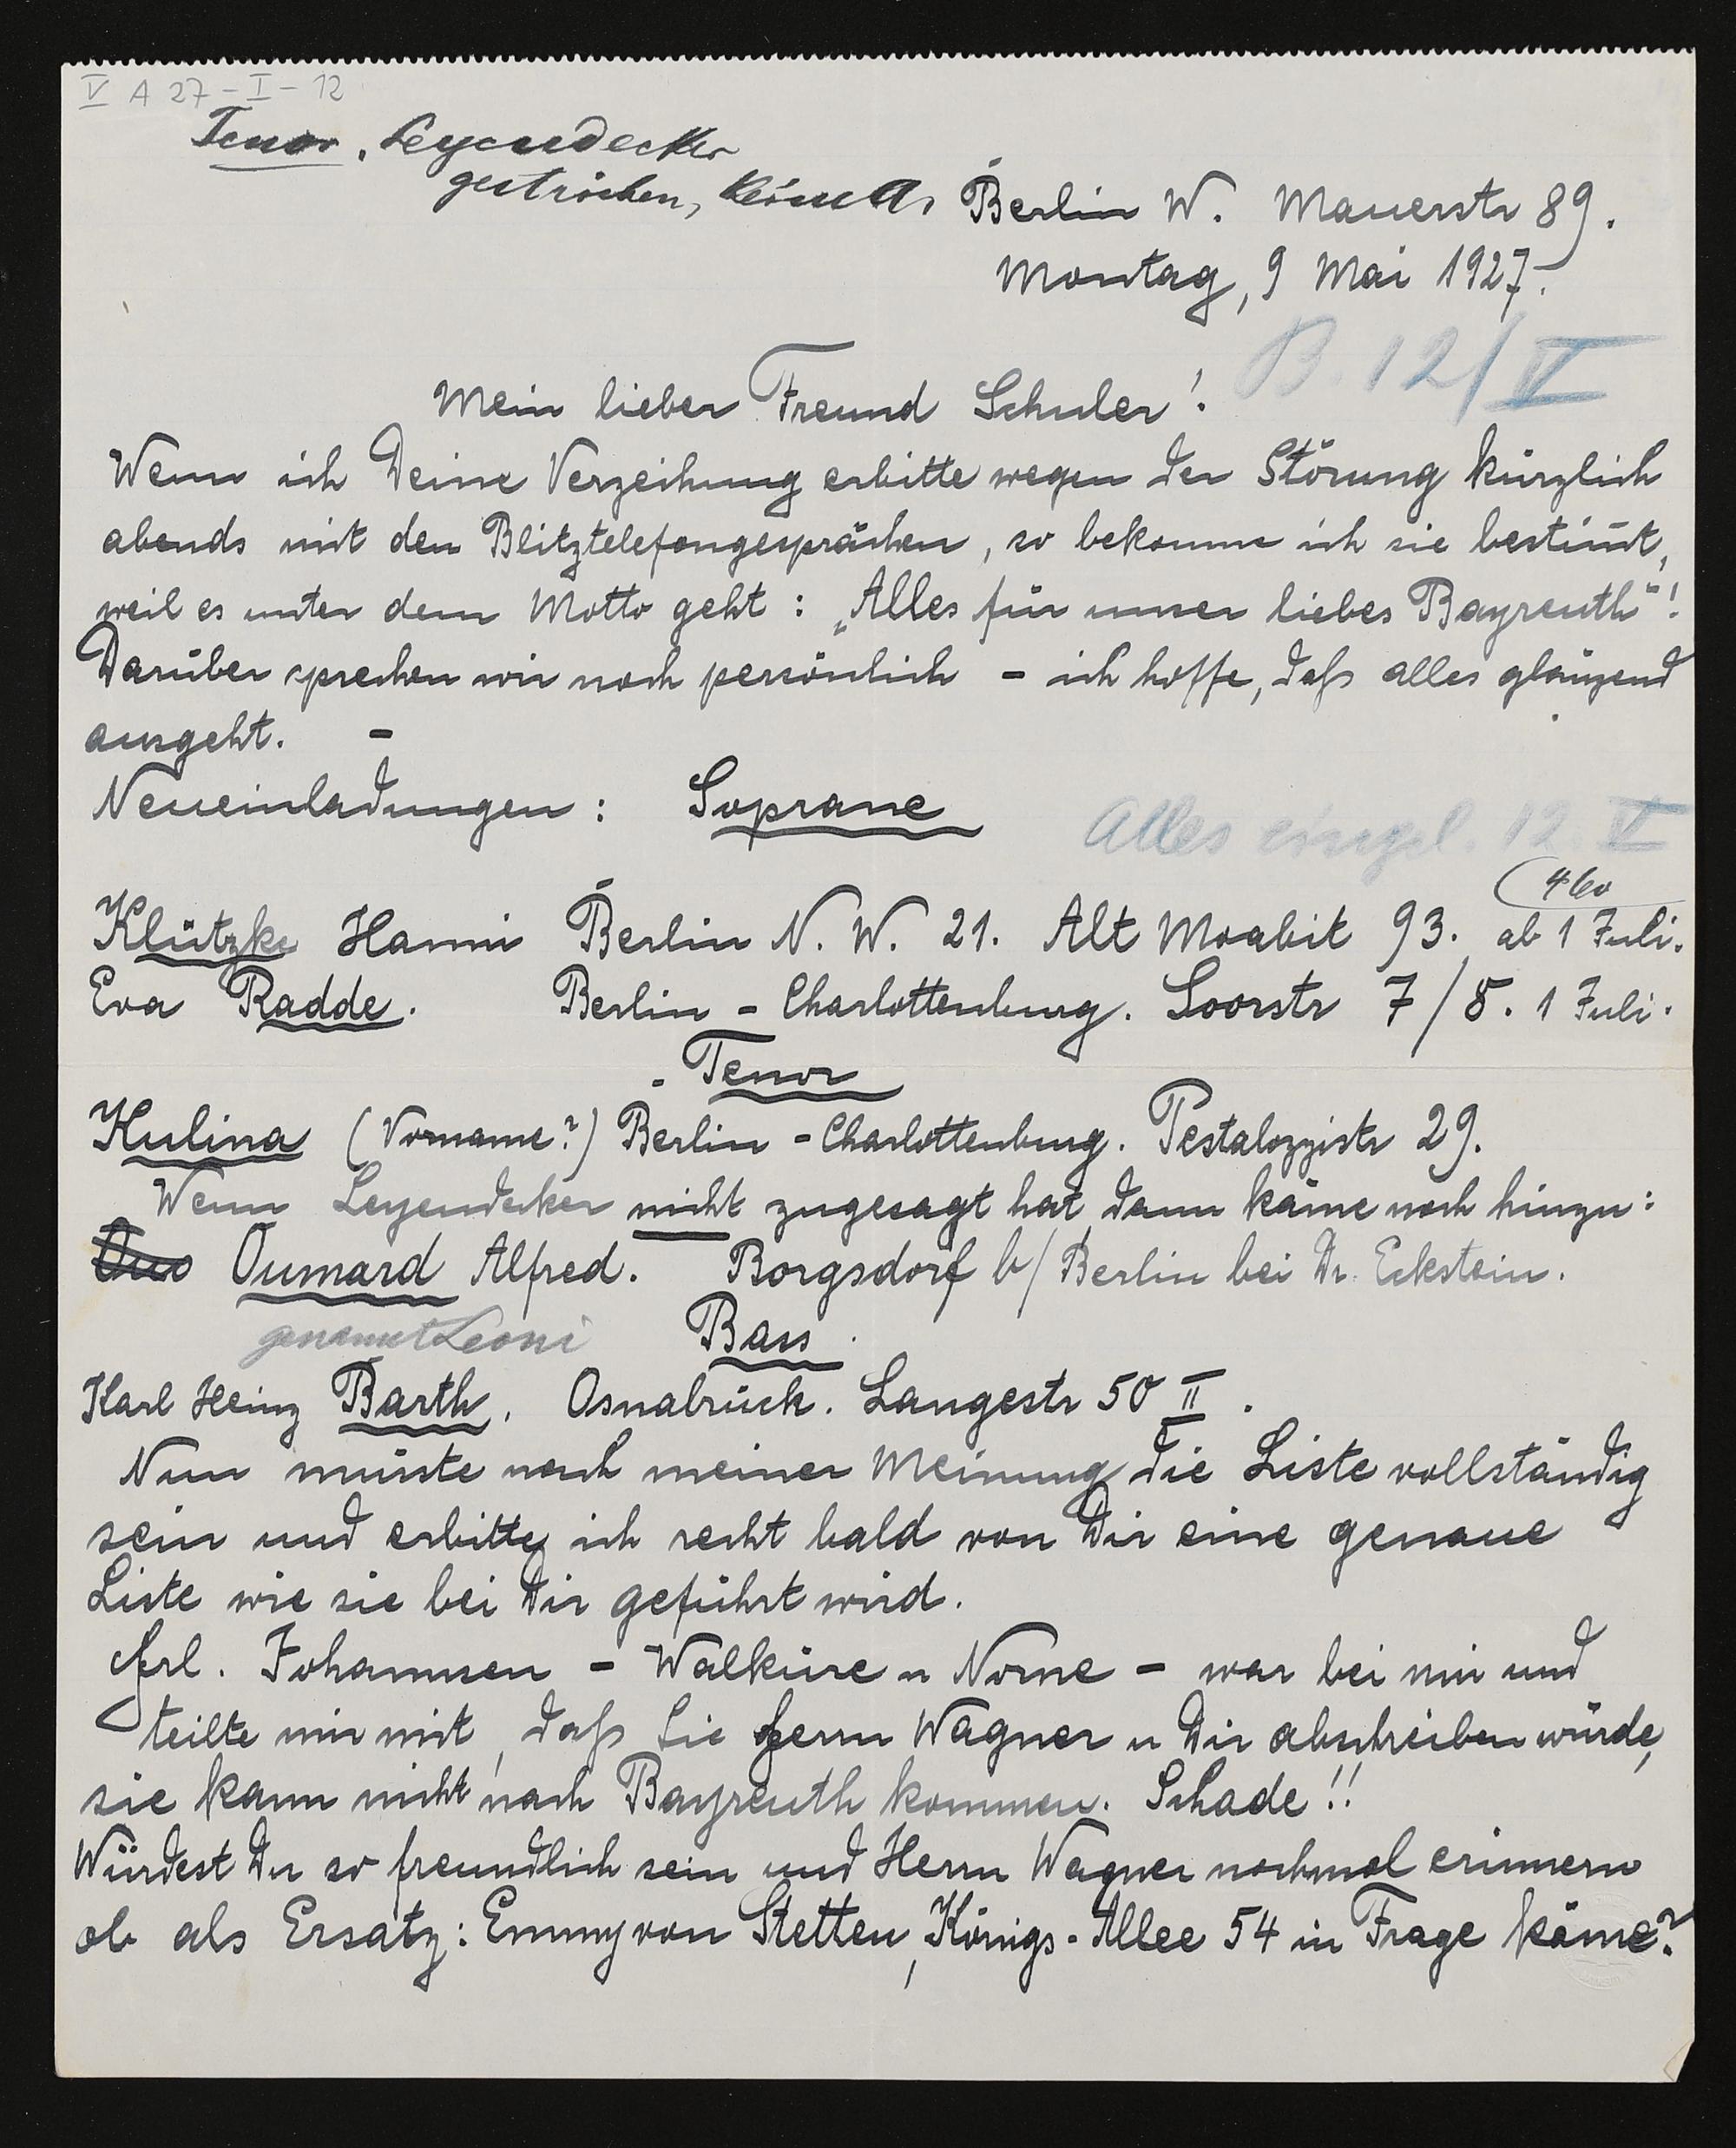 V A 27 - I - 12
Tenor, Leyendecker
gestrichen, keine A,
Berlin W. Mauerstr 89.
Montag, 9 Mai 1927.
B. 12/V
Mein lieber Freund Schuler!
Wenn ich Deine Verzeihung erbitte wegen der Störung kürzlich
abends mit den Blitztelefongesprächen, so bekomme ich sie bestim̄t,
weil es unter dem Motto geht: „Alles für unser liebes Bayreuth"!
Darüber sprechen wir noch persönlich - ich hoffe, daſs alles glänzend
ausgeht. -
Neueinladungen: Soprane
Alles eingel. 12. V
460
Klützke Hanni Berlin N. W. 21. Alt Moabit 93. ab 1 Juli.
Eva Radde. Berlin - Charlottenburg. Soorstr 7/8. 1 Juli.
- Tenor
Kulina (Vorname?) Berlin - Charlottenburg. Pestalozzistr 29.
Wenn Leyendecker nicht zugesagt hat, dann käme noch hinzu:
Oumard Alfred. Borgsdorf b/ Berlin bei Dr. Eckstein.
genannt Leoni
Bass.
Karl Heinz Barth. Osnabrück. Langestr 50 II.
Nun müsste nach meiner Meinung die Liste vollständig
sein und erbitte ich recht bald von Dir eine genaue
Liste wie sie bei Dir geführt wird.
Frl. Johannsen - Walküre u Norne - war bei mir und
teilte mir mit, daſs Sie Herrn Wagner u Dir abschreiben würde,
sie kann nicht nach Bayreuth kommen. Schade!!
Würdest Du so freundlich sein und Herrn Wagner nochmal erinnern
ob als Ersatz: Emmy von Stetten, Königs-Allee 54 in Frage käme?